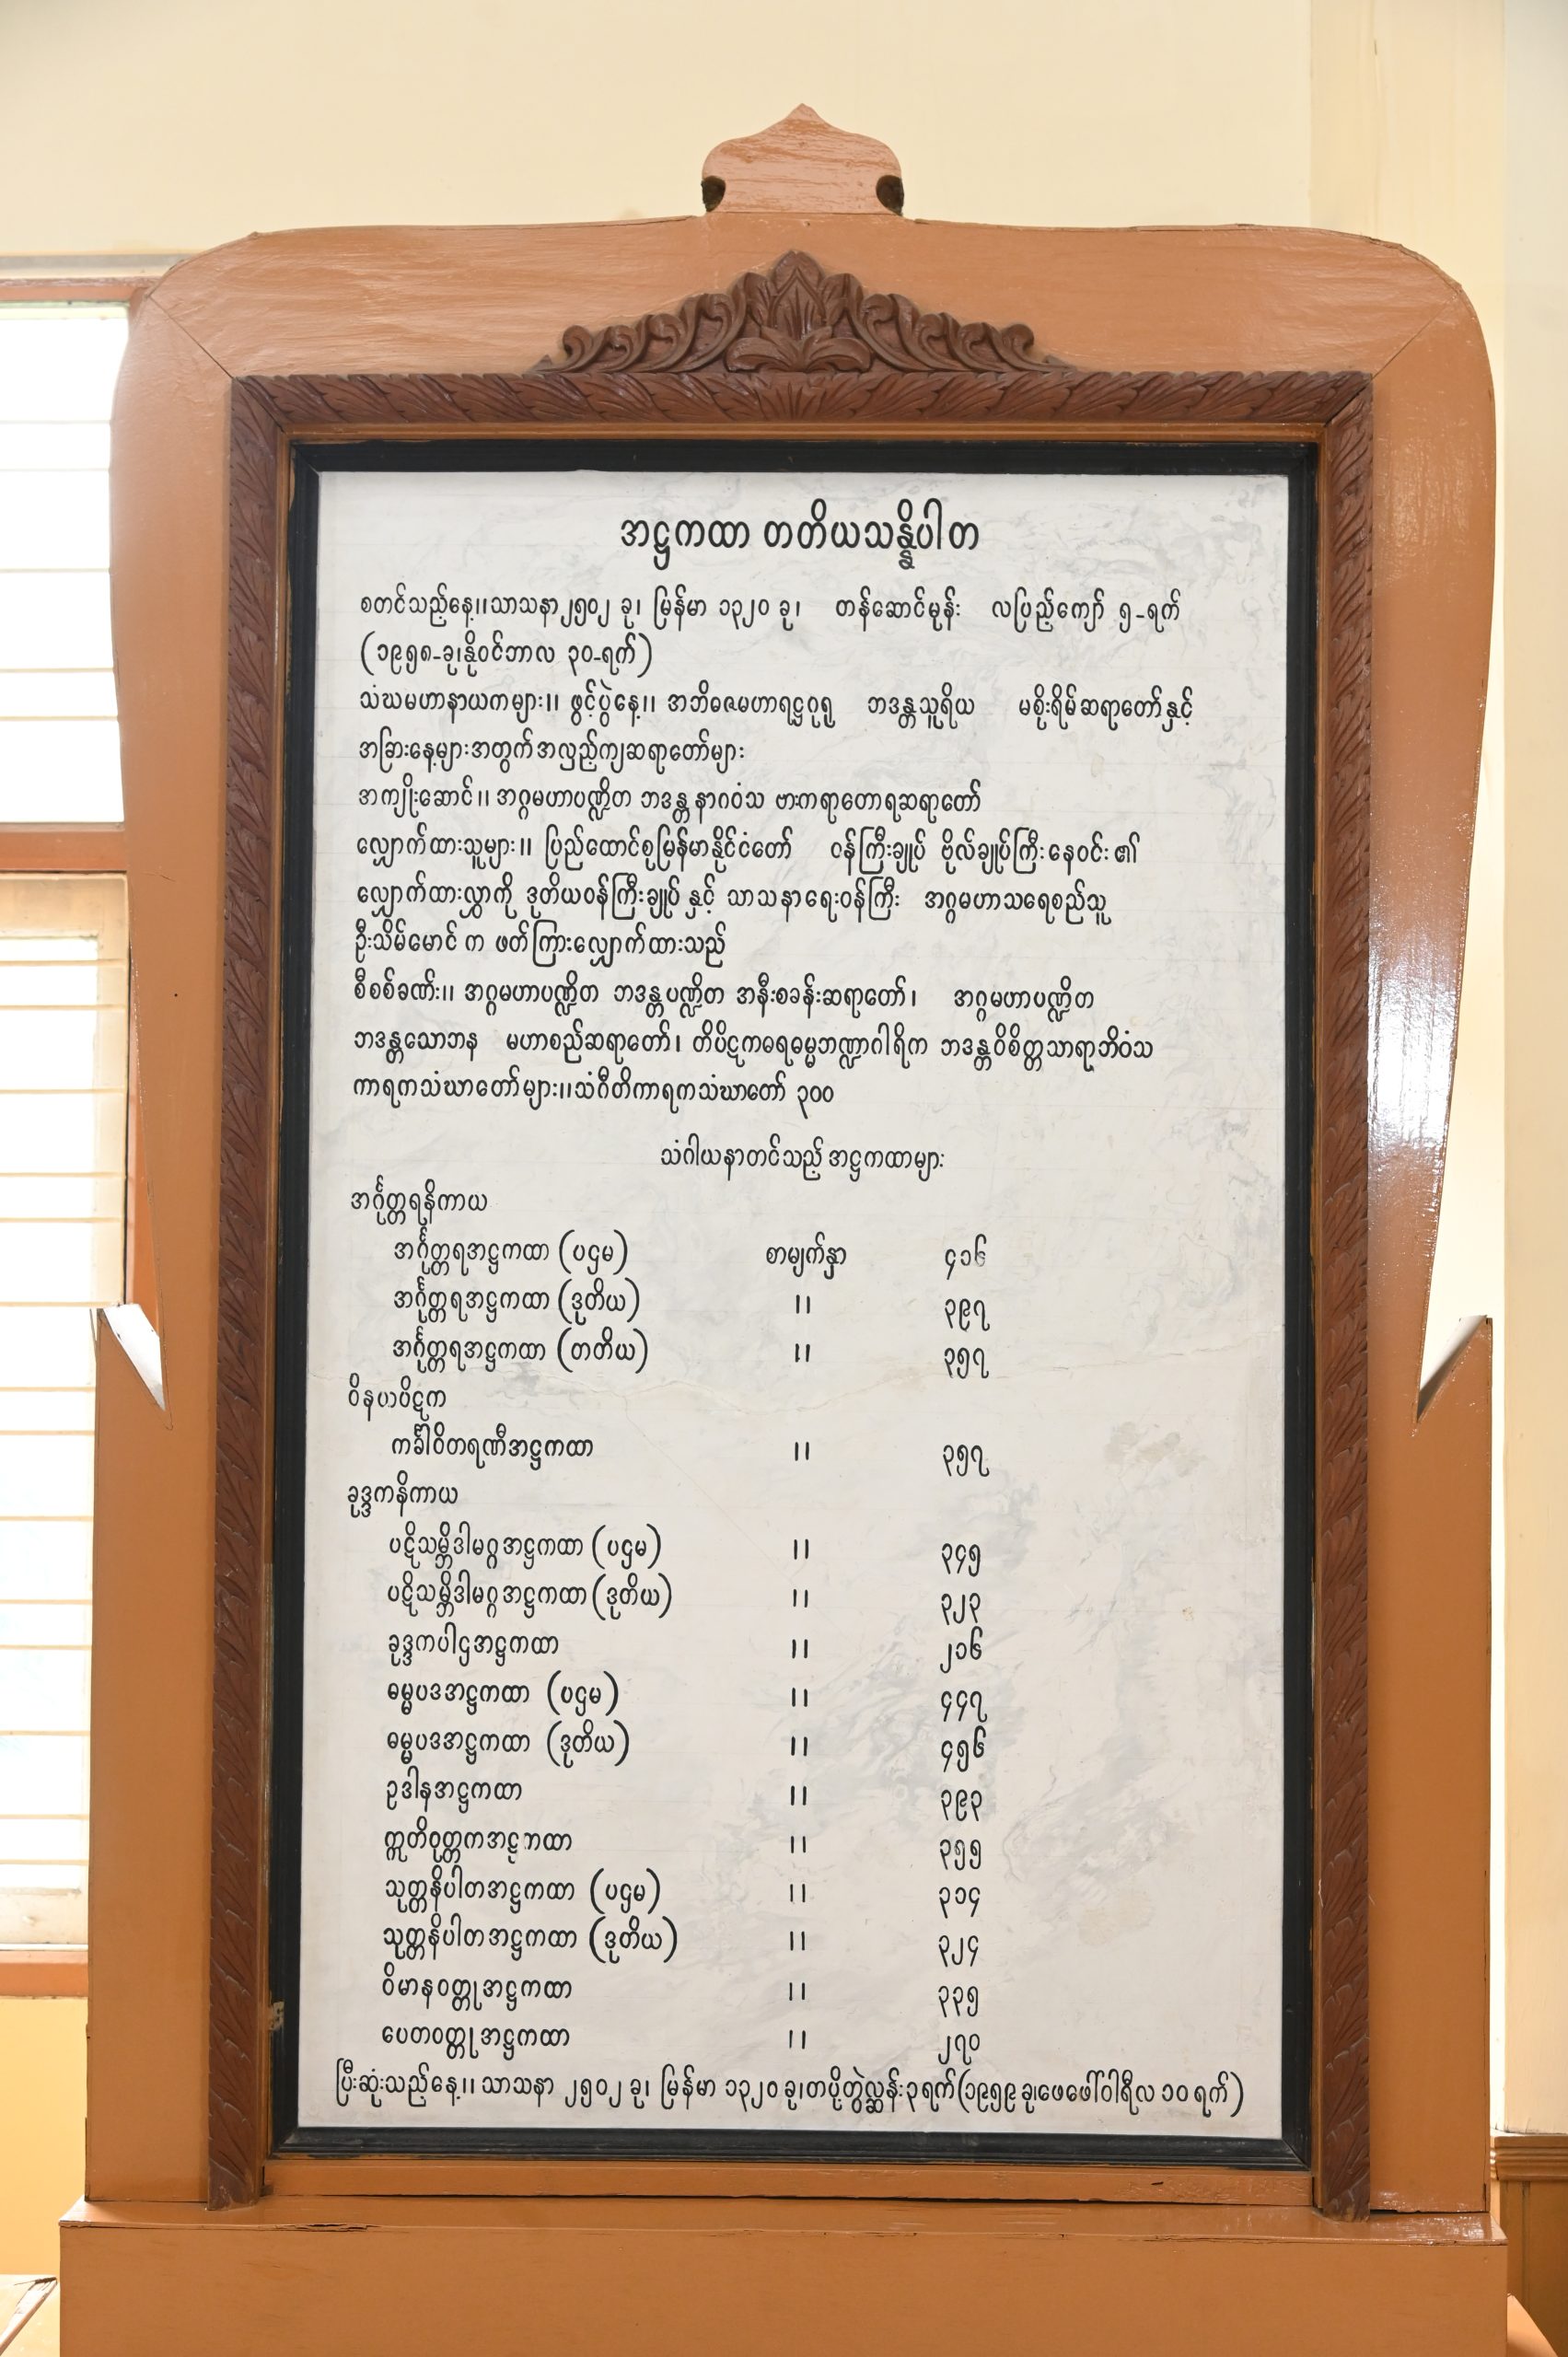 အဋ္ဌကထာ တတိယသန္နိပါတ
စတင်သည့်နေ့၊၊သာသနာ၂၅၀၂ ခု၊ မြန်မာ ၁၃၂၀ ခု၊ တန်ဆောင်မုန်း လပြည့်ကျော် ၅-ရက်
(၁၉၅၈-ခု၊နိုဝင်ဘာလ ၃၀-ရက်)
သံဃမဟာနာယကများ၊၊ ဖွင့်ပွဲနေ့၊၊ အဘိဓဇမဟာရဋ္ဌဂုရု ဘဒန္တသူရိယ မစိုးရိမ်ဆရာတော်နှင့်
အခြားနေ့များအတွက်အလှည့်ကျဆရာတော်များ
အကျိုးဆောင်၊၊ အဂ္ဂမဟာပဏ္ဍိတ ဘဒန္တနာဂဝံသ ဗားကရာတောရဆရာတော်
လျှောက်ထားသူများ၊၊ ပြည်ထောင်စုမြန်မာနိုင်ငံတော် ဝန်ကြီးချုပ် ဗိုလ်ချုပ်ကြီးနေဝင်း၏
လျှောက်ထားလွှာကို ဒုတိယဝန်ကြီးချုပ် နှင့် သာသနာရေးဝန်ကြီး အဂ္ဂမဟာသရေစည်သူ
ဦးသိမ်မောင် က ဖတ်ကြားလျှောက်ထားသည်
စီစစ်ခဏ်း၊၊ အဂ္ဂမဟာပဏ္ဍိတ ဘဒန္တပဏ္ဍိတ အနီးစခန်းဆရာတော်၊ အဂ္ဂမဟာပဏ္ဍိတ
ဘဒန္တသောဘန မဟာစည်ဆရာတော်၊ တိပိဋကဓရဓမ္မဘဏ္ဍာဂါရိက ဘဒန္တဝိစိတ္တသာရာဘိဝံသ
ကာရကသံဃာတော်များ၊၊သံဂီတိကာရကသံဃာတော် ၃၀၀
သံဂါယနာတင်သည့် အဋ္ဌကထာများ
အင်္ဂုတ္တရနိကာယ
အင်္ဂုတ္တရအဋ္ဌကထာ (ပဌမ) စာမျက်နှာ ၄၁၆
အင်္ဂုတ္တရအဋ္ဌကထာ (ဒုတိယ) ၊၊ ၃၉၇
အင်္ဂုတ္တရအဋ္ဌကထာ (တတိယ) ၊၊ ၃၅၇
ဝိနယပိဋက
ကင်္ခါဝိတရဏီအဋ္ဌကထာ ၊၊ ၃၅၇
ခုဒ္ဒကနိကာယ
ပဋိသမ္ဘိဒါမဂ္ဂအဋ္ဌကထာ (ပဌမ) ၊၊ ၃၄၅
ပဋိသမ္ဘိဒါမဂ္ဂအဋ္ဌကထာ (ဒုတိယ) ၊၊ ၃၂၃
ခုဒ္ဒကပါဌအဋ္ဌကထာ ၊၊ ၂၁၆
ဓမ္မပဒအဋ္ဌကထာ (ပဌမ) ၊၊ ၄၄၇
ဓမ္မပဒအဋ္ဌကထာ (ဒုတိယ) ၊၊ ၄၅၆
ဥဒါနအဋ္ဌကထာ ၊၊ ၃၉၃
ဣတိဝုတ္တကအဋ္ဌကထာ ၊၊ ၃၅၅
သုတ္တနိပါတအဋ္ဌကထာ (ပဌမ) ၊၊ ၃၁၄
သုတ္တနိပါတအဋ္ဌကထာ (ဒုတိယ) ၊၊ ၃၂၄
ဝိမာနဝတ္ထုအဋ္ဌကထာ ၊၊ ၃၃၅
ပေတဝတ္ထုအဋ္ဌကထာ ၊၊ ၂၇၀
ပြီးဆုံးသည့်နေ့၊၊ သာသနာ ၂၅၀၂ ခု၊ မြန်မာ ၁၃၂၀ ခု၊တပို့တွဲလ္ဆန်း၃ရက်(၁၉၅၉ခု၊ဖေဖေါ်ဝါရီလ ၁၀ ရက်)